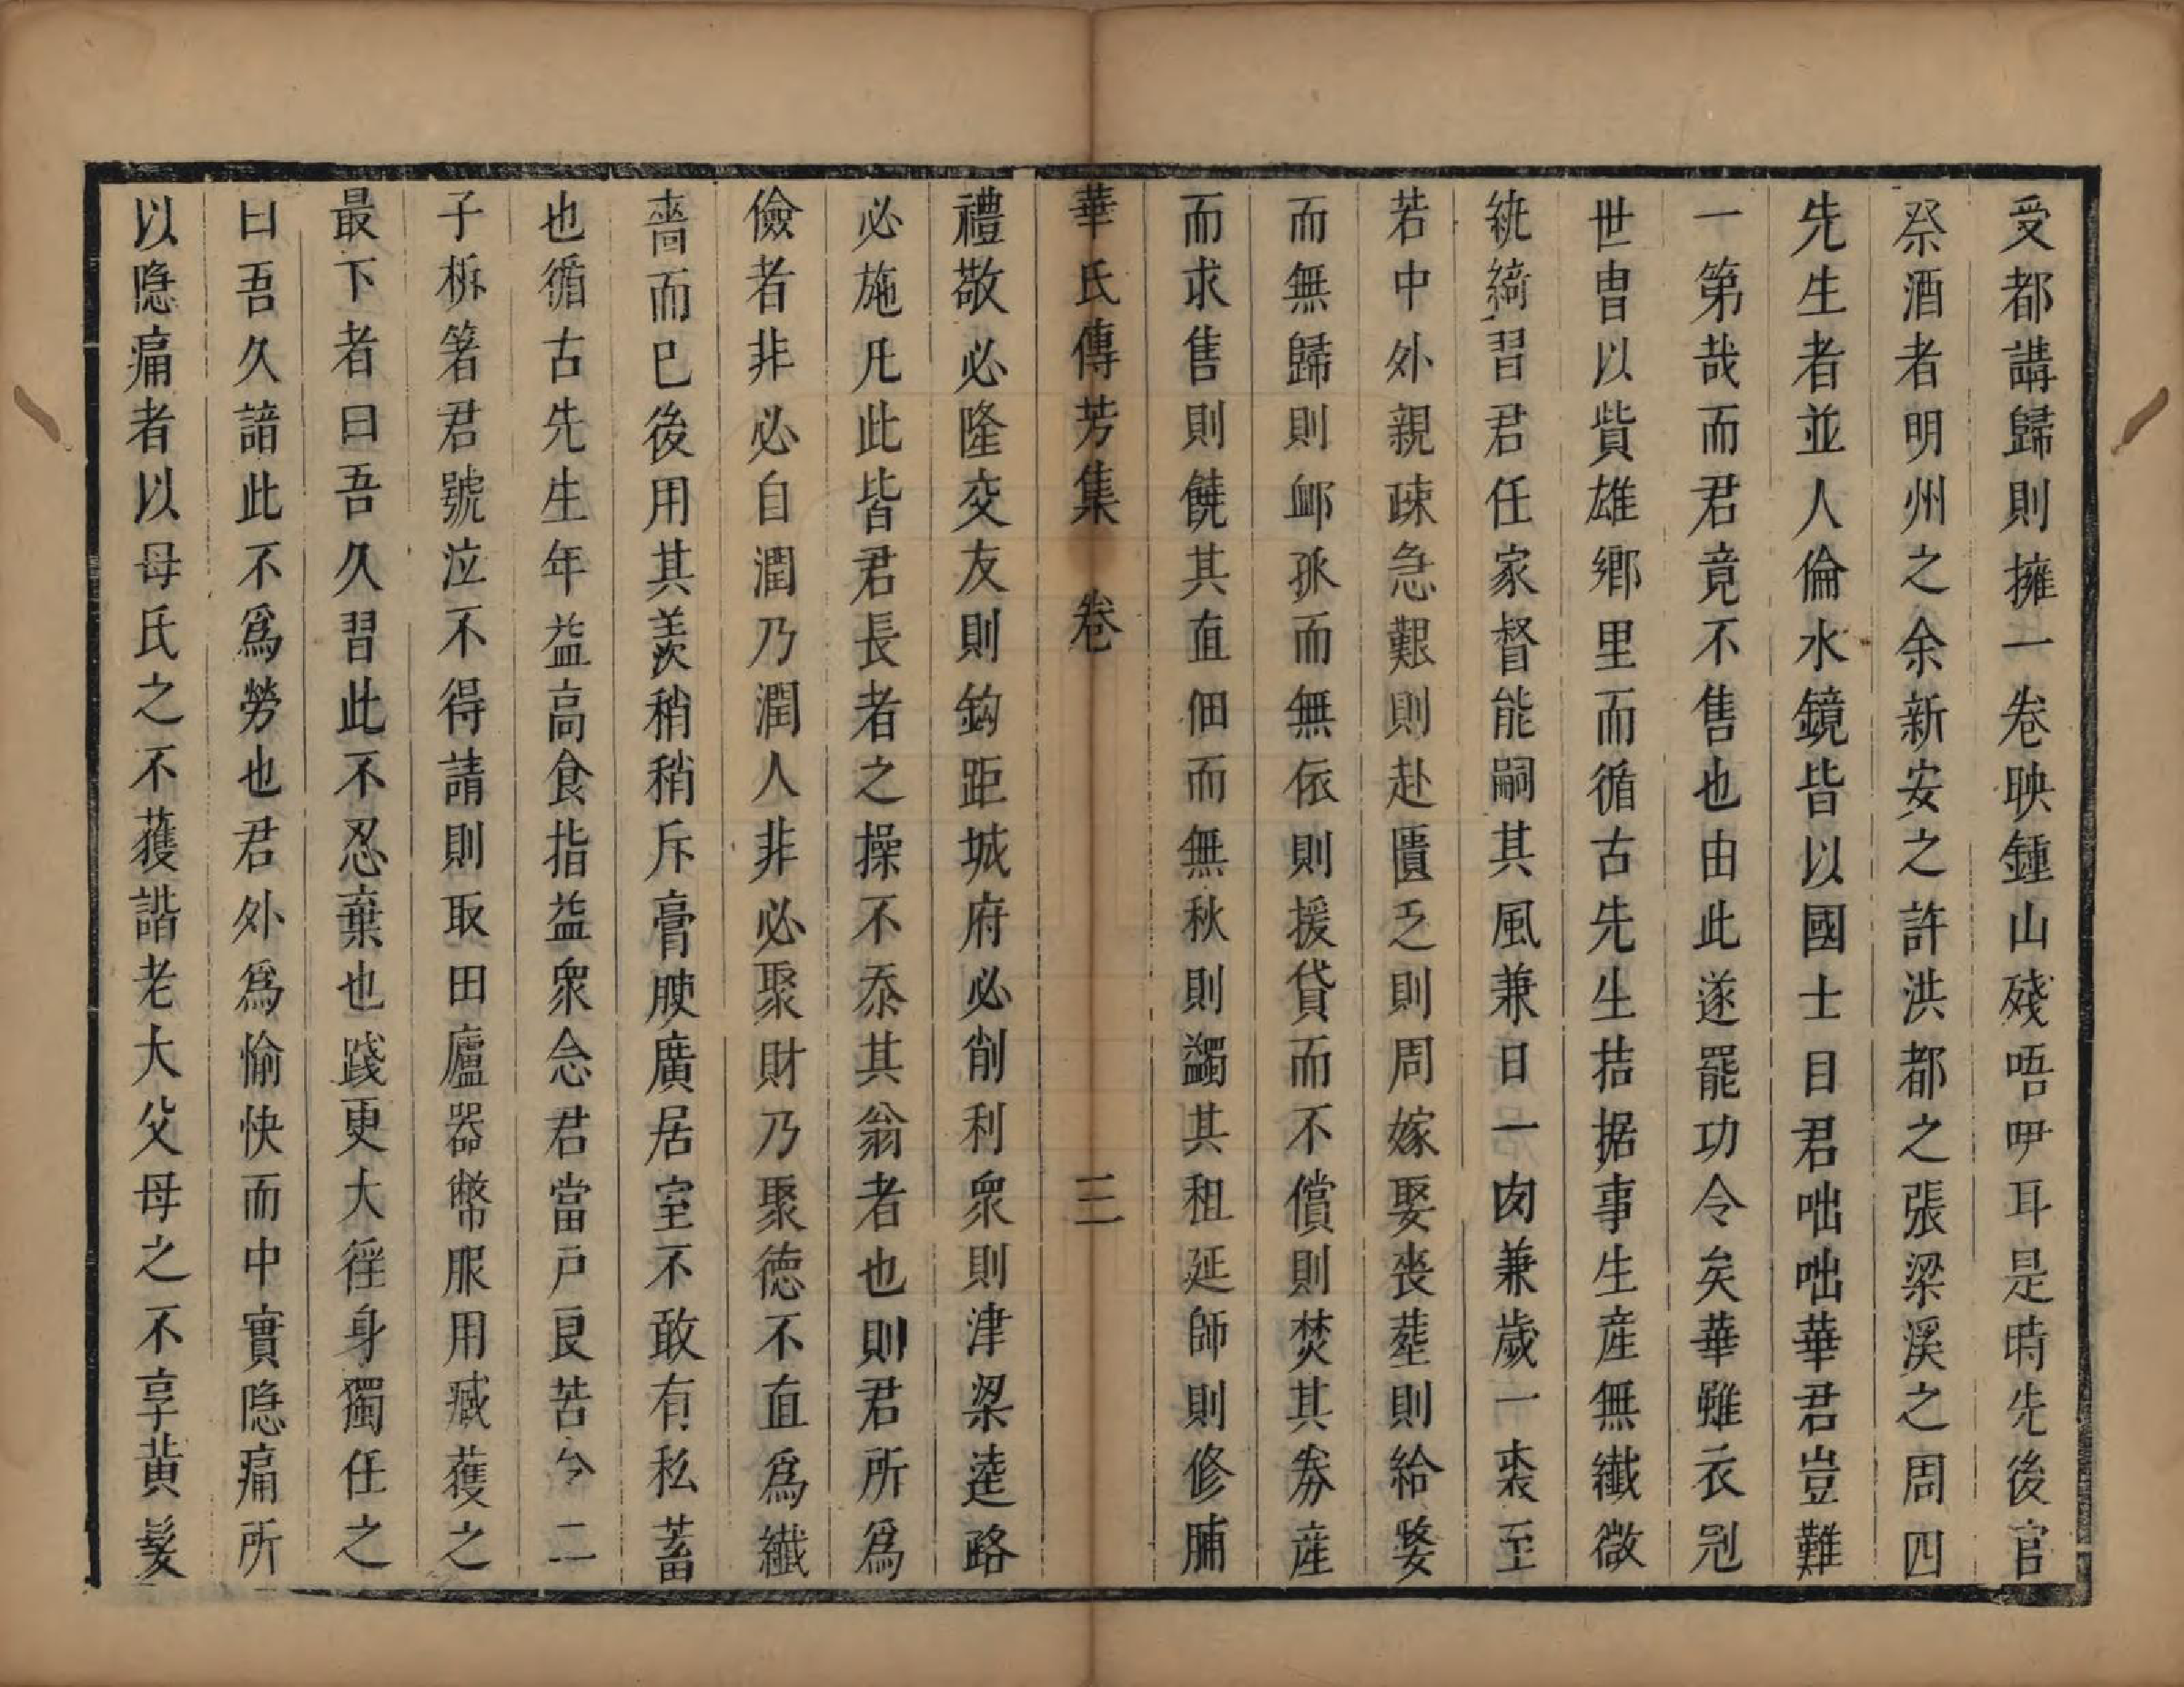 受都講歸則擁一卷映鍾山殘唔咿耳是時先後官
祭酒者明州之余新安之許洪都之張梁溪之周四
先生者並人倫水鏡皆以國士目君咄咄華君豈難
一第哉而君竟不售也由此遂罷功令矣華雖衣冠
世曺以貲雄鄉里而循古先生拮据事生産無纖微
統綺習君任家督能嗣其風兼日一肉兼歲一裘至
若中外親疎急艱則赴匱乏則周嫁娶喪塟則給婺
而無歸則邺孤而無依則援貸而不償則焚其券産
而求售則饒其直佃而無秋則蠲其租延師則修脯
華氏傳芳集　卷　三
禮敬必隆交友則鈎距城府必削利衆則津梁逵路
必施凡此皆君長者之操不忝其翁者也則君所爲
儉者非必自潤乃潤人非必聚財乃聚德不直爲纖
嗇而已後用其羨稍稍斥膏腴廣居室不敢有私蓄
也循古先生年益高食指益衆念君當戸良苦今二
子柝箸君號泣不得請則取田廬器幣服用臧獲之
最下者曰吾久習此不忍棄也踐更大徭身獨任之
曰吾久諳此不爲勞也君外爲愉快而中實隱痛所
以隱痛者以母氏之不獲諧老大父母之不享黄髮